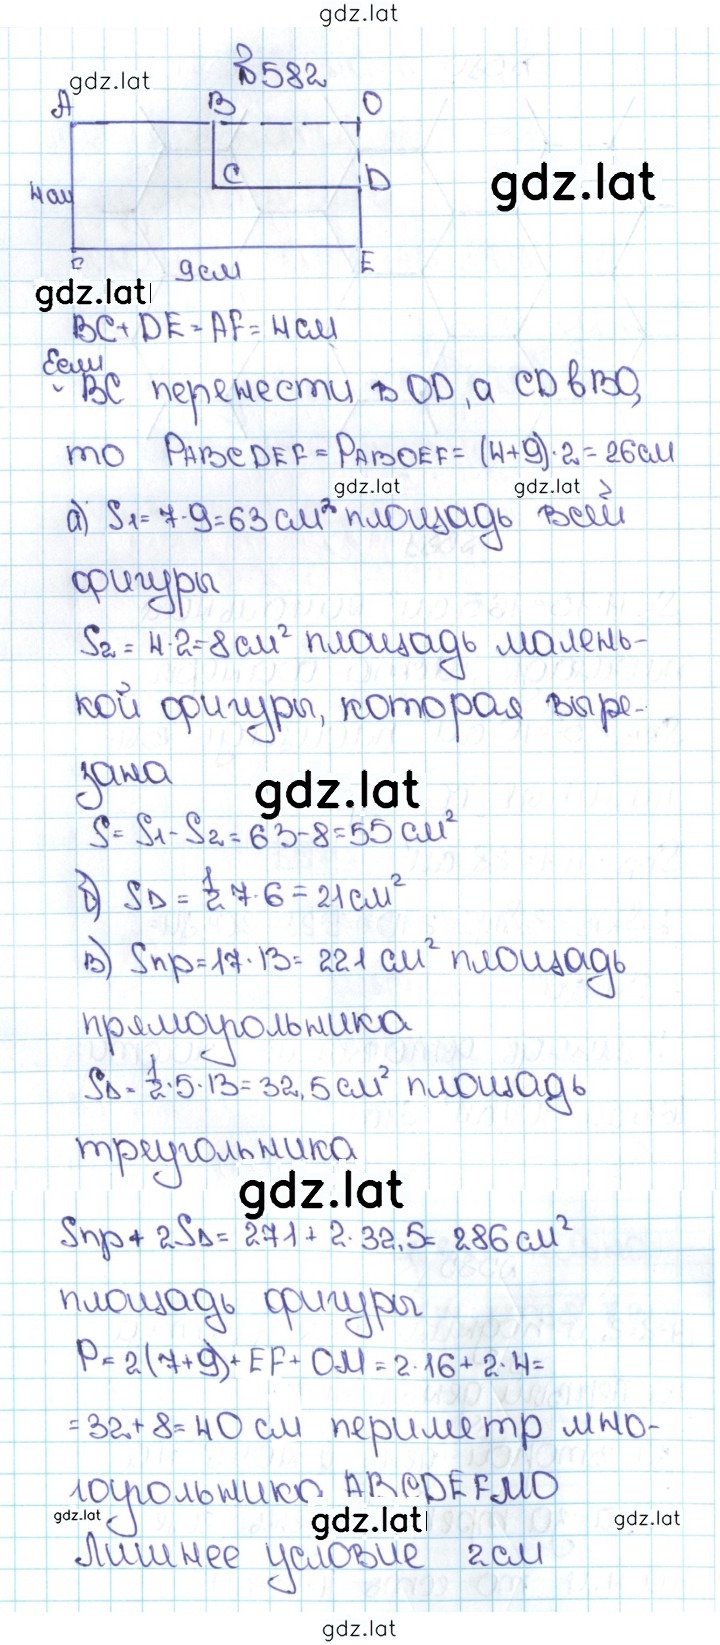 gdz.lat
№582
gdz.lat
A B O
C D
gdz.lat
4см
F E
9см
gdz.lat
BC+DE=AF=4см
Если
BC перенести в OD, а CD в BO,
то PABCDEF=PABOEF=(4+9)·2=26см
gdz.lat gdz.lat
а) S1=7·9=63см² площадь всей
фигуры
S2=4·2=8см² площадь малень-
кой фигуры, которая выре-
зана
gdz.lat
S=S1-S2=63-8=55см²
б) SΔ=1/2 7·6=21см²
в) Sпр=17·13=221см² площадь
прямоугольника
SΔ=1/2·5·13=32,5см² площадь
треугольника
gdz.lat
Sпр+2SΔ=271+2·32,5=286см²
площадь фигуры
P=2(7+9)+EF+OM=2·16+2·4=
=32+8=40см периметр мно-
гоугольника ABCDEFMO
gdz.lat gdz.lat gdz.lat
Лишнее условие 2см
gdz.lat